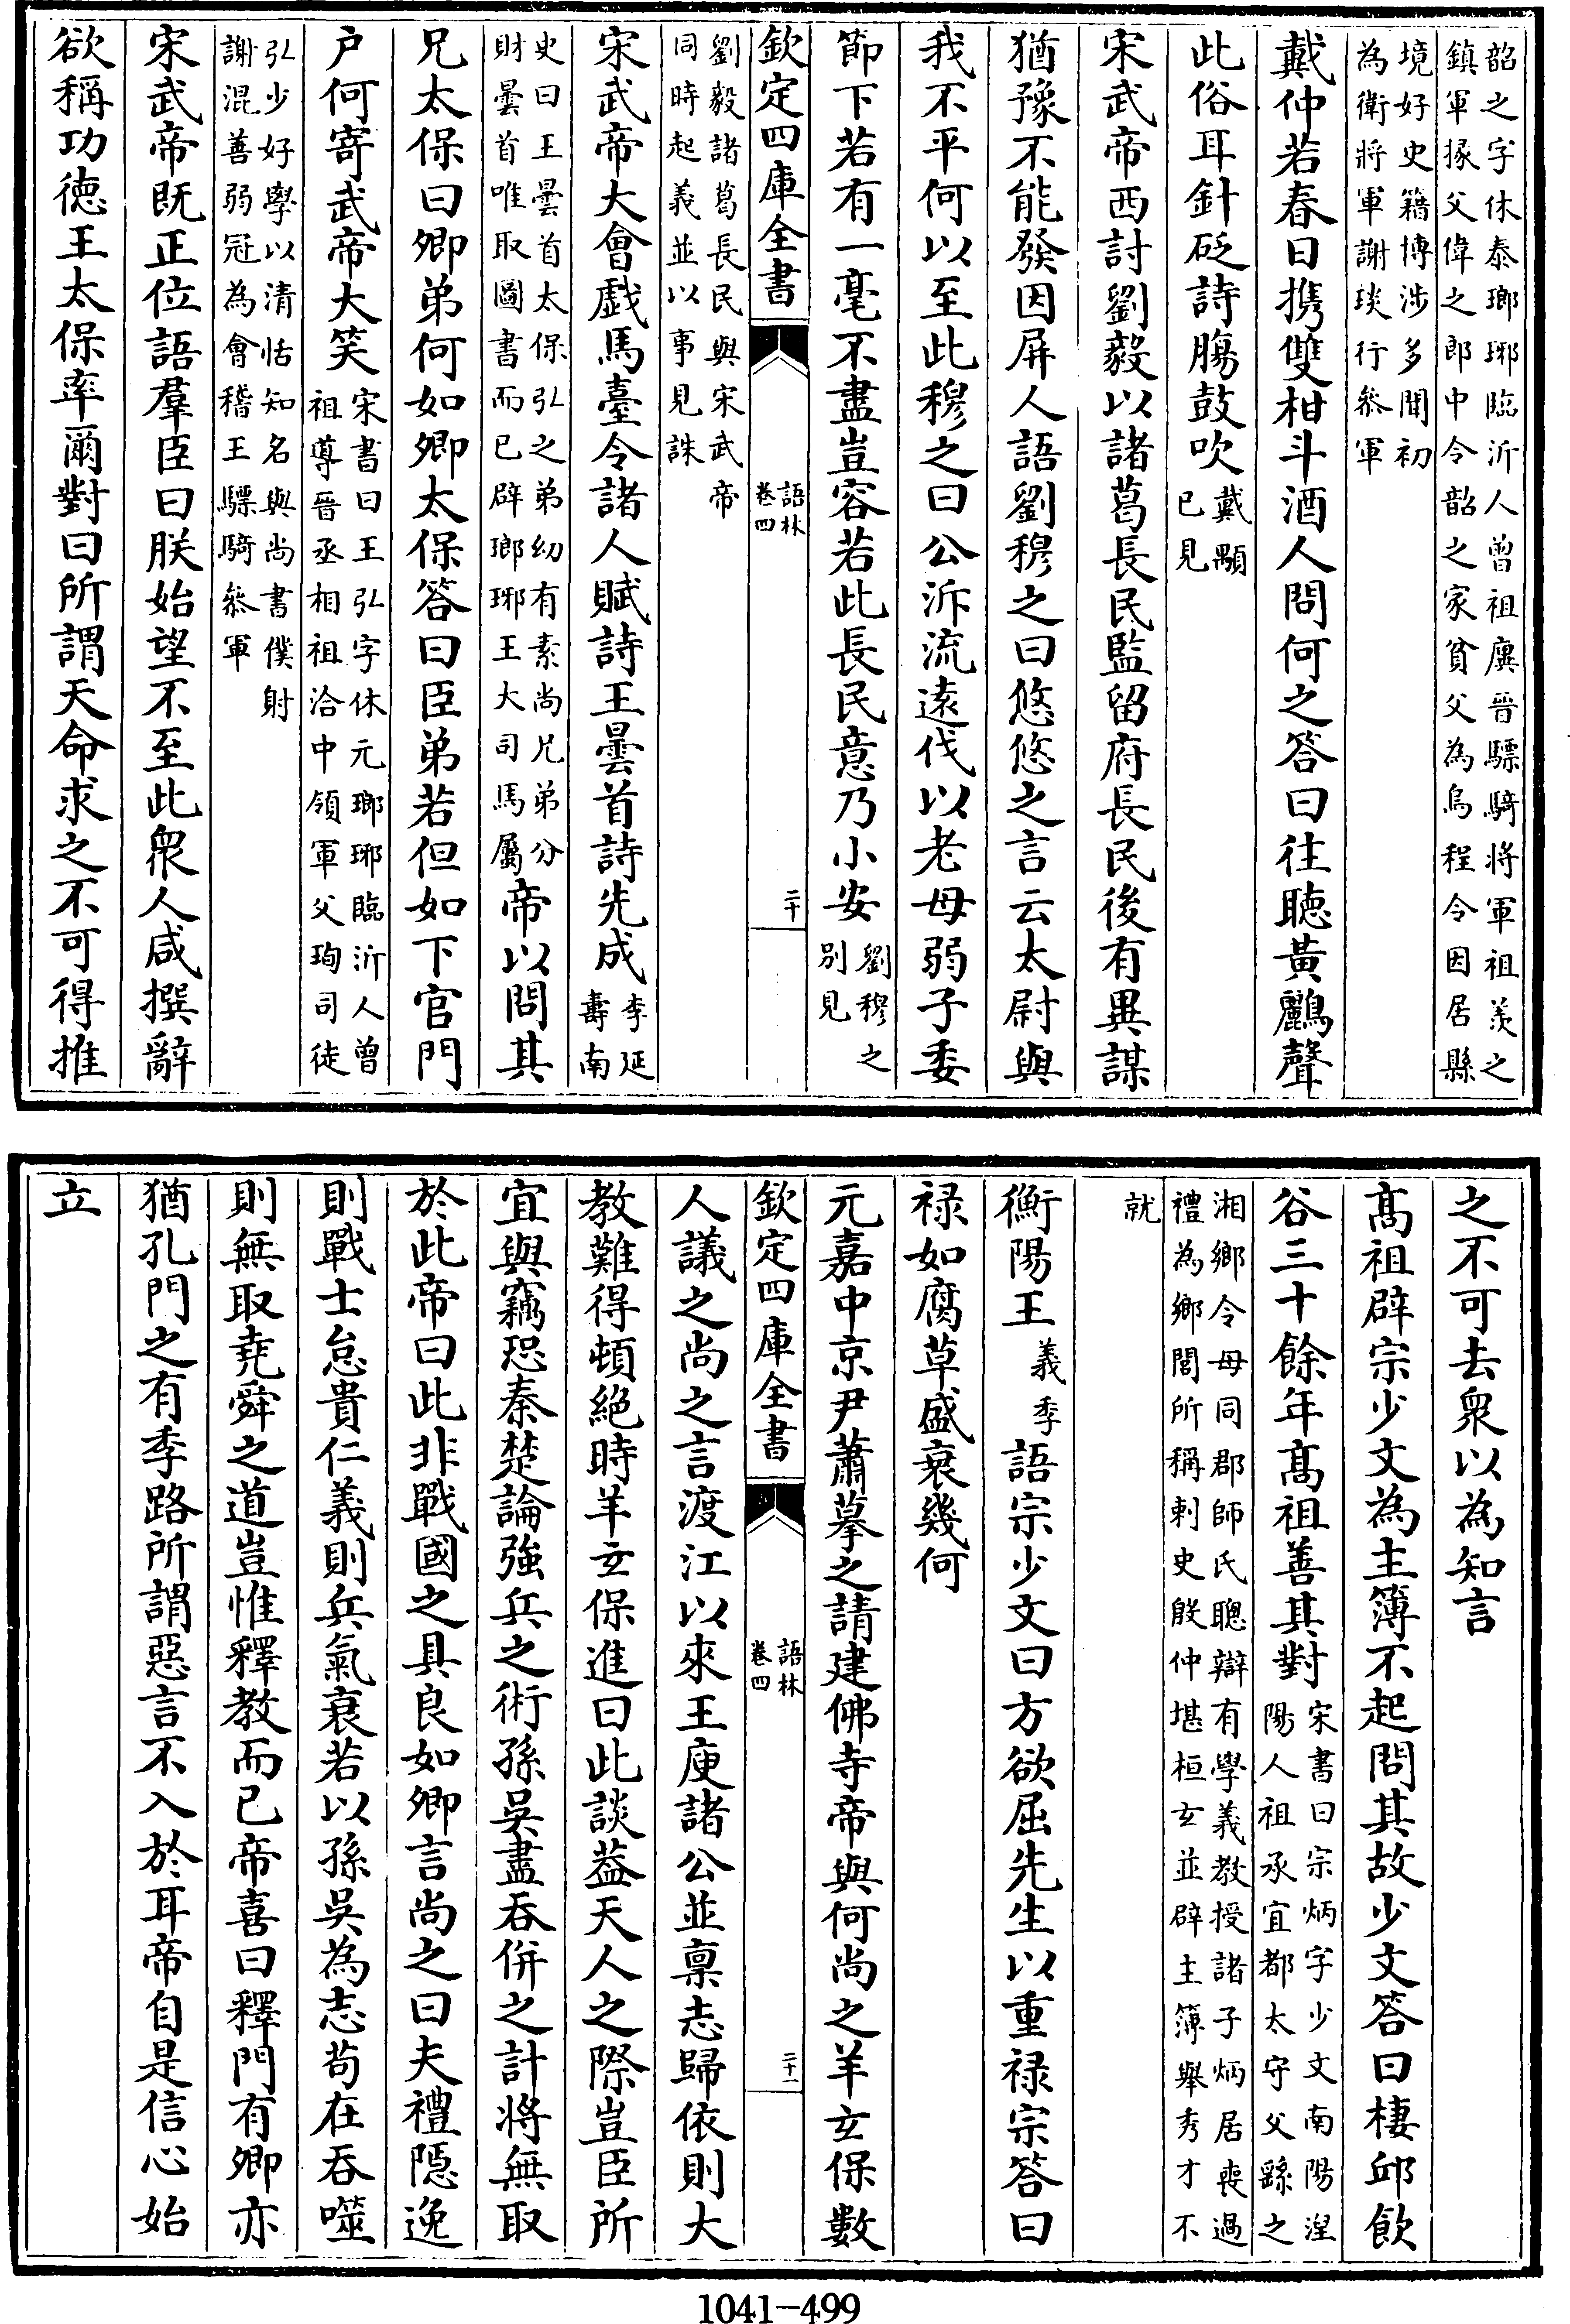 韶之字休泰瑯琊臨沂人曾祖廙晉驃騎將軍祖羨之
鎮軍掾父偉之郎中令韶之家貧父為烏程令因居縣
境好史籍博涉多聞初
為衛將軍謝琰行叅軍
戴仲若春日攜雙柑斗酒人問何之答曰往聽黃鸝聲
此俗耳針砭詩腸鼓吹
戴顒
已見
宋武帝西討劉毅以諸葛長民監留府長民後有異謀
猶豫不能發因屏人語劉穆之曰悠悠之言云太尉與
我不平何以至此穆之曰公泝流遠伐以老母弱子委
節下若有一毫不盡豈容若此長民意乃小安
劉穆之
別見
欽定四庫全書
語林
卷四
二十
劉毅諸葛長民與宋武帝
同時起義並以事見誅
宋武帝大會戲馬臺令諸人賦詩王曇首詩先成
李延
壽南
史曰王曇首太保弘之弟幼有素尚兄弟分
財曇首唯取圖書而已辟瑯琊王大司馬屬
帝以問其
兄太保曰卿弟何如卿太保答曰臣弟若但如下官門
户何寄武帝大笑
宋書曰王弘字休元瑯琊臨沂人曾
祖導晉丞相祖洽中領軍父珣司徒
弘少好學以清恬知名與尚書僕射
謝混善弱冠為會稽王驃騎叅軍
宋武帝既正位語羣臣曰朕始望不至此衆人咸撰辭
欲稱功德王太保率爾對曰所謂天命求之不可得推
之不可去衆以為知言
髙祖辟宗少文為主簿不起問其故少文答曰棲邱飲
谷三十餘年髙祖善其對
宋書曰宗炳字少文南陽湼
陽人祖承宜都太守父繇之
湘鄉令母同郡師氏聰辯有學義教授諸子炳居喪過
禮為鄉閭所稱刺史殷仲堪桓玄並辟主簿舉秀才不
就
衡陽王
義季
語宗少文曰方欲屈先生以重禄宗答曰
禄如腐草盛衰幾何
元嘉中京尹蕭摹之請建佛寺帝與何尚之羊玄保數
欽定四庫全書
語林
卷四
二十一
人議之尚之言渡江以來王庾諸公並稟志歸依則大
教難得頓絶時羊玄保進曰此談葢天人之際豈臣所
宜與竊恐秦楚論強兵之術孫吳盡吞併之計將無取
於此帝曰此非戰國之具良如卿言尚之曰夫禮隱逸
則戰士怠貴仁義則兵氣衰若以孫吳為志茍在吞噬
則無取堯舜之道豈惟釋教而已帝喜曰釋門有卿亦
猶孔門之有季路所謂惡言不入於耳帝自是信心始
立
1041-499